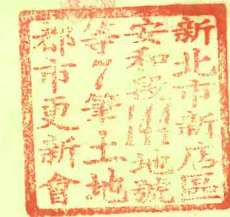 新北市新店區
安和段川地號
等7筆土地
都市更新會